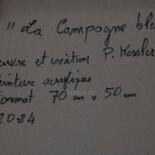 " La Campagne ble
œuvre et création P. Messler
peinture acrylique
format 70 cm x 50 cm
2024